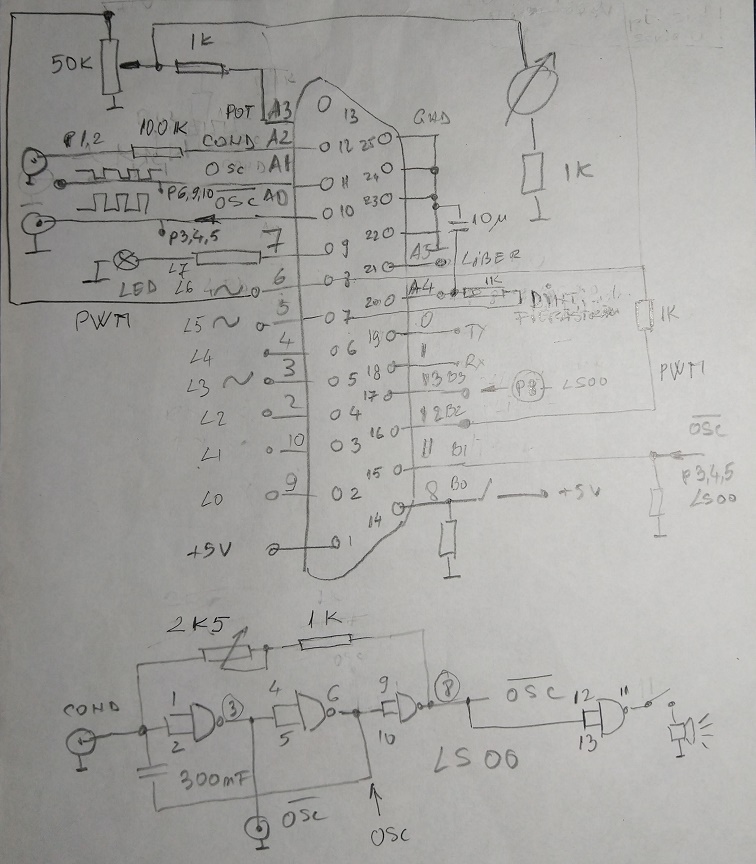 50K
1K
POT
A3
13
GND
P1,2
100 1K
COND
A2
12
25
OSC
A1
24
1K
P6,9,10
OSC
A0
11
23
10
10µ
P3,4,5
7
9
22
A5
LIBER
L7
LED
L6
6
8
21
A4
1K
PWM
L5
5
7
20
0
TX
1K
L4
4
6
19
1
RX
L3
3
5
18
13 B5
P8
LS00
PWM
17
L2
2
4
12 B2
16
OSC
L1
10
3
11
B1
15
P3,4,5
LS00
L0
9
2
8
B0
+5V
14
+5V
1
2K5
1K
COND
1
2
3
4
5
6
9
10
8
OSC
12
13
11
300mF
LS00
OSC
OSC